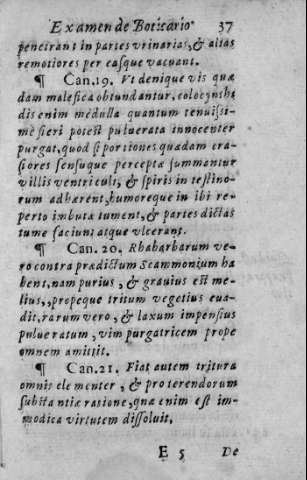 Examen de Boticario 37
penetrant in partes vrinarias, & alias
remotiores per easque vacuant.
¶ Can.19. Vt denique vis quæ
dam malefica obtundantur, colocynthi
dis enim medulla quantum tenuissi-
mè fieri potest puluerata innocenter
purgat, quod si portiones quædam cra-
siores sensuque perceptæ summentur
villis ventriculi, & spiris intestino-
rum adhærent, humoreque in ibi re-
perto imbutæ tument, & partes dictas
tume faciunt atque vlcerant.
¶ Can. 20. Rhabarbarum ve-
ro contra prædictum Scammonium ha
bent, nam purius, & grauius est me-
lius, propeque tritum vegetius eua-
dit, rarum vero, & laxum impensius
pulueratum, vim purgatricem prope
omnem amittit.
¶ Can.21. Fiat autem tritura
omnis elementer, & pro terendorum
substantiæ ratione, quæ enim est im-
modica virtutem dissoluit.
E 5 De